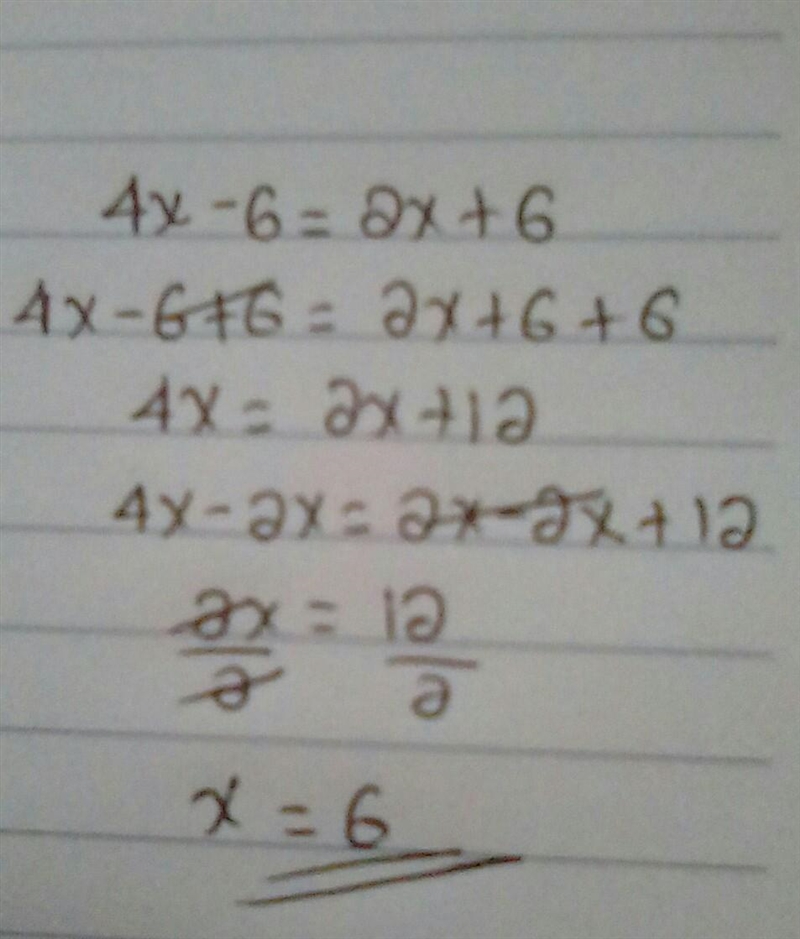 4x - 6 = 2x + 6
4x - 6 + 6 = 2x + 6 + 6
4x = 2x + 12
4x - 2x = 2x - 2x + 12
2x/2 = 12/2
x = 6